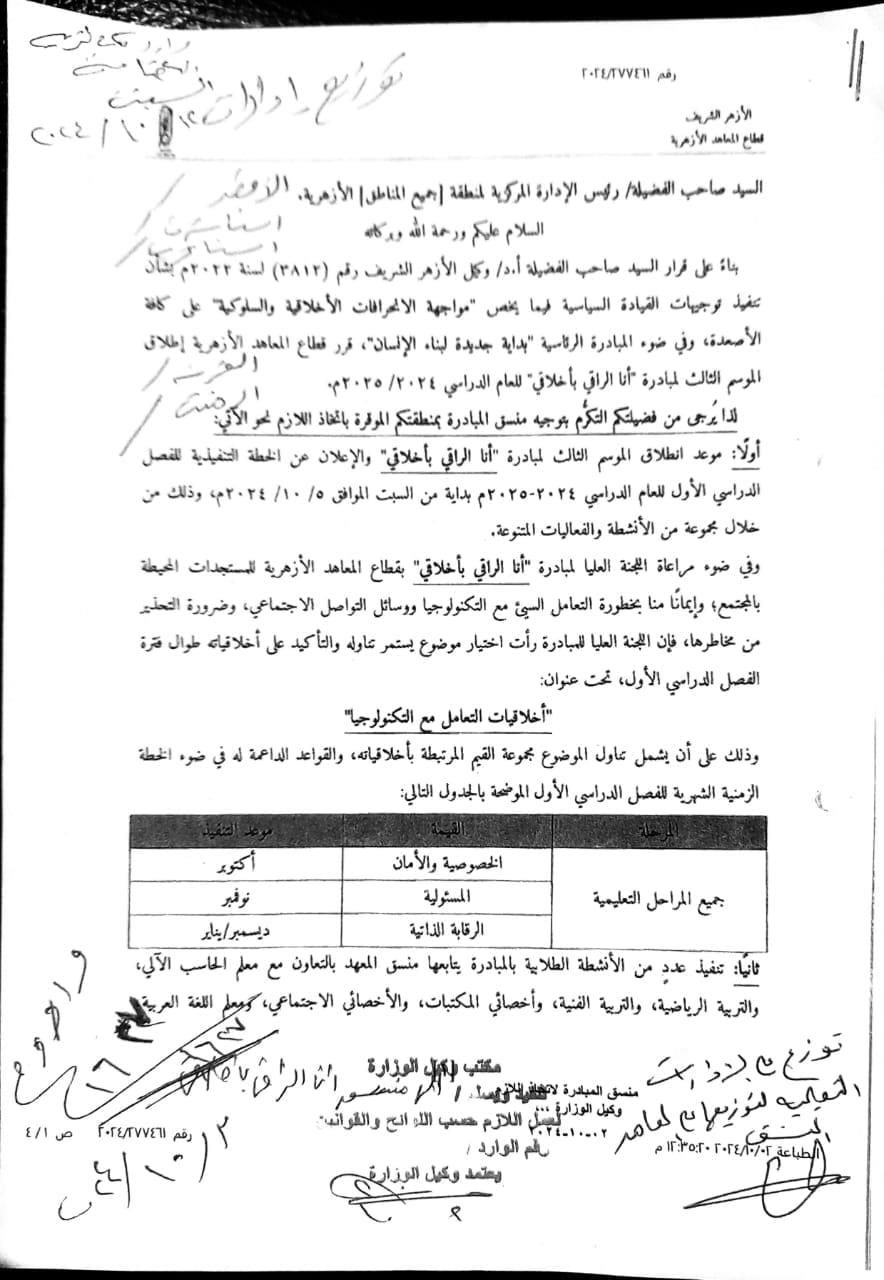 رقم ٢٠٢٤/٢٧٧٤٦١
توزيع إدارات
السبت
٢٠٢٤/١٠/١٢
الأزهر الشريف
قطاع المعاهد الأزهرية
السيد صاحب الفضيلة/ رئيس الإدارة المركزية لمنطقة [جميع المناطق] الأزهرية.
السلام عليكم ورحمة الله وبركاته
بناءً على قرار السيد صاحب الفضيلة أ.د/ وكيل الأزهر الشريف رقم (٣٨١٢) لسنة ٢٠٢٢م بشأن
تنفيذ توجيهات القيادة السياسية فيما يخص "مواجهة الانحرافات الأخلاقية والسلوكية" على كافة
الأصعدة، وفي ضوء المبادرة الرئاسية "بداية جديدة لبناء الإنسان"، قرر قطاع المعاهد الأزهرية إطلاق
الموسم الثالث لمبادرة "أنا الراقي بأخلاقي" للعام الدراسي ٢٠٢٤/ ٢٠٢٥م.
لذا يُرجى من فضيلتكم التكرُّم بتوجيه منسق المبادرة بمنطقتكم الموقرة باتخاذ اللازم نحو الآتي:
أولًا: موعد انطلاق الموسم الثالث لمبادرة "أنا الراقي بأخلاقي" والإعلان عن الخطة التنفيذية للفصل
الدراسي الأول للعام الدراسي ٢٠٢٤-٢٠٢٥م بداية من السبت الموافق ٥/ ١٠/ ٢٠٢٤م، وذلك من
خلال مجموعة من الأنشطة والفعاليات المتنوعة.
وفي ضوء مراعاة اللجنة العليا لمبادرة "أنا الراقي بأخلاقي" بقطاع المعاهد الأزهرية للمستجدات المحيطة
بالمجتمع؛ وإيمانًا منا بخطورة التعامل السيئ مع التكنولوجيا ووسائل التواصل الاجتماعي، وضرورة التحذير
من مخاطرها، فإن اللجنة العليا للمبادرة رأت اختيار موضوع يستمر تناوله والتأكيد على أخلاقياته طوال فترة
الفصل الدراسي الأول، تحت عنوان:
"أخلاقيات التعامل مع التكنولوجيا"
وذلك على أن يشمل تناول الموضوع مجموعة القيم المرتبطة بأخلاقياته، والقواعد الداعمة له في ضوء الخطة
الزمنية الشهرية للفصل الدراسي الأول الموضحة بالجدول التالي:
المرحلة القيمة موعد التنفيذ
جميع المراحل التعليمية
الخصوصية والأمان أكتوبر
المسئولية نوفمبر
الرقابة الذاتية ديسمبر/يناير
ثانيًا: تنفيذ عددٍ من الأنشطة الطلابية بالمبادرة يتابعها منسق المعهد بالتعاون مع معلم الحاسب الآلي،
والتربية الرياضية، والتربية الفنية، وأخصائي المكتبات، والأخصائي الاجتماعي، ومعلم اللغة العربية
مكتب وكيل الوزارة
منسق المبادرة لاتخاذ اللازم
وكيل الوزارة ...
٠٢-١٠-٢٠٢٤
لعمل اللازم حسب اللوائح والقوانين
رقم الوارد /
يعتمد وكيل الوزارة
الطباعة ٢٠٢٤/١٠/٠٢ ١٢:٣٥:٢٠ م
رقم ٢٠٢٤/٢٧٧٤٦١ ص ٤/١